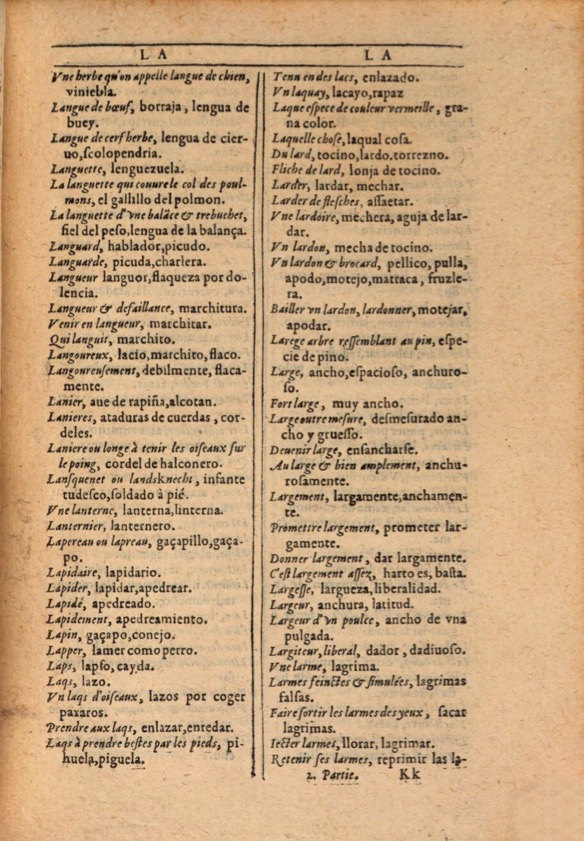 LA
Vne herbe qu'on appelle langue de chien,
viniebla.
Langue de bœuf, borraja, lengua de
buey.
Langue de cerf herbe, lengua de cier-
uo, ſcolopendria.
Languette, lenguezuela.
La languette qui couure le col des poul-
mons, el galhillo del polmon.
La languette d'vne balāce & trebuchet,
fiel del peſo, lengua de la balança.
Languard, hablador, picudo.
Languarde, picuda, charlera.
Langueur languor, flaqueza por do-
lencia.
Langueur & defaillance, marchitura.
Venir en langueur, marchitar.
Qui languit, marchito.
Langoureux, lacio, marchito, flaco.
Langoureuſement, debilmente, flaca-
mente.
Lanier, aue de rapiña, alcotan.
Lanieres, ataduras de cuerdas, cor-
deles.
Laniere ou longe à tenir les oiſeaux ſur
le poing, cordel de halconero.
Lanſquenet ou landsknecht, infante
tudeſco, ſoldado à pié.
Vne lanterne, lanterna, linterna.
Lanternier, lanternero.
Lapereau ou lapreau, gaçapillo, gaça-
po.
Lapidaire, lapidario.
Lapider, lapidar, apedrear.
Lapidé, apedreado.
Lapidement, apedreamiento.
Lapin, gaçapo, conejo.
Lapper, lamer como perro.
Laps, lapſo, cayda.
Laqs, lazo.
Vn laqs d'oiſeaux, lazos por coger
paxaros.
Prendre aux laqs, enlazar, enredar.
Laqs à prendre beſtes par les pieds, pi-
huela, piguela.
LA
Tenu en des lacs, enlazado.
Vn laquay, lacayo, rapaz
Laque eſpece de couleur vermeille, gra-
na color.
Laquelle choſe, laqual coſa.
Du lard, tocino, lardo, torrezno.
Fliche de lard, lonja de tocino.
Larder, lardar, mechar.
Larder de fleſches, aſſaetar.
Vne lardoire, mechera, aguja de lar-
dar.
Vn lardon, mecha de tocino.
Vn lardon & brocard, pellico, pulla,
apodo, motejo, matraca, fruzle-
ra.
Bailler vn lardon, lardonner, motejar,
apodar.
Larege arbre reſſemblant au pin, eſpe-
cie de pino.
Large, ancho, eſpacioſo, anchuro-
ſo.
Fort large, muy ancho.
Large outre meſure, deſmeſurado an-
cho y grueſſo.
Deuenir large, enſancharſe.
Au large & bien amplement, anchu-
roſamente.
Largement, largamente, anchamen-
te.
Promettre largement, prometer lar-
gamente.
Donner largement, dar largamente.
C'eſt largement aſſez, harto es, baſta.
Largeſſe, largueza, liberalidad.
Largeur, anchura, latitud.
Largeur d'vn poulce, ancho de vna
pulgada.
Largiteur, liberal, dador, dadiuoſo.
Vne larme, lagrima.
Larmes feinctes & ſimulées, lagrimas
falſas.
Faire ſortir les larmes des yeux, ſacar
lagrimas.
Iecter larmes, llorar, lagrimar.
Retenir ſes larmes, reprimir las la-
2. Partie. Kk